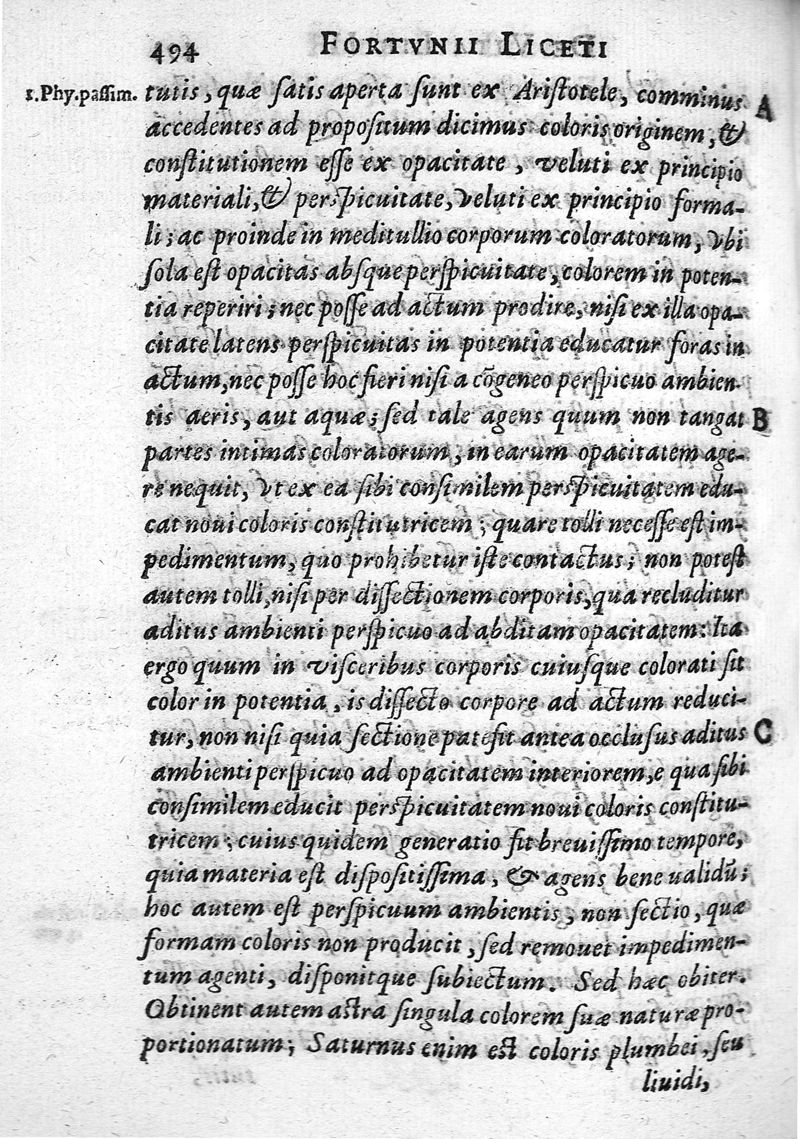 494 FORTVNII LICETI
1.Phy.passim. tutis, quæ satis aperta sunt ex Aristotele, comminus A
accedentes ad propositum dicimus coloris originem, &
constitutionem esse ex opacitate, veluti ex principio
materiali, & perspicuitate, veluti ex principio forma-
li; ac proinde in meditullio corporum coloratorum, vbi
sola est opacitas absque perspicuitate, colorem in poten-
tia reperiri; nec posse ad actum prodire, nisi ex illa opa-
citate latens perspicuitas in potentia educatur foras in
actum, nec posse hoc fieri nisi a cōgeneo perspicuo ambien-
tis aeris, aut aquæ; sed tale agens quum non tangat B
partes intimas coloratorum, in earum opacitatem age-
re nequit, vt ex ea sibi consimilem perspicuitatem edu-
cat noui coloris constitutricem; quare tolli necesse est im-
pedimentum, quo prohibetur iste contactus; non potest
autem tolli, nisi per dissectionem corporis, qua recluditur
aditus ambienti perspicuo ad abditam opacitatem: Ita
ergo quum in visceribus corporis cuiusque colorati sit
color in potentia, is dissecto corpore ad actum reduci-
tur, non nisi quia sectione patefit antea occlusus aditus C
ambienti perspicuo ad opacitatem interiorem, e qua sibi
consimilem educit perspicuitatem noui coloris constitu-
tricem; cuius quidem generatio fit breuissimo tempore,
quia materia est dispositissima, & agens bene ualidū;
hoc autem est perspicuum ambientis, non sectio, quæ
formam coloris non producit, sed remouet impedimen-
tum agenti, disponitque subiectum. Sed hæc obiter.
Obtinent autem astra singula colorem suæ naturæ pro-
portionatum; Saturnus enim est coloris plumbei, seu
liuidi,